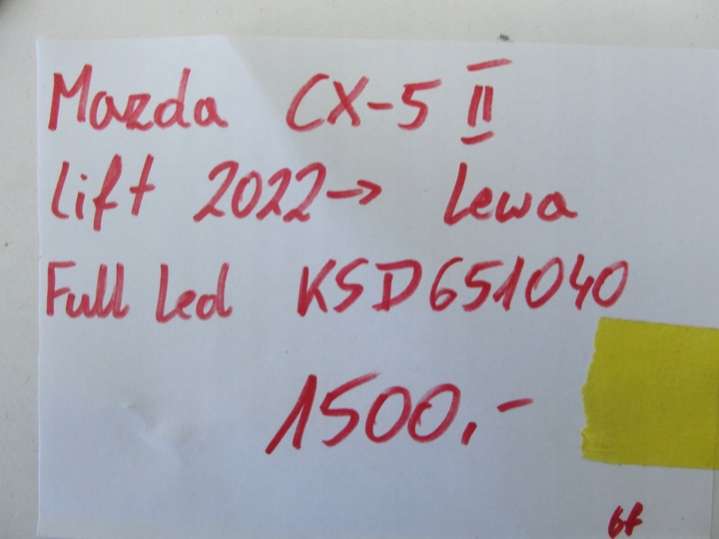 Mazda CX-5 II
lift 2022→ Lewa
Full Led KSD651040
1500,-